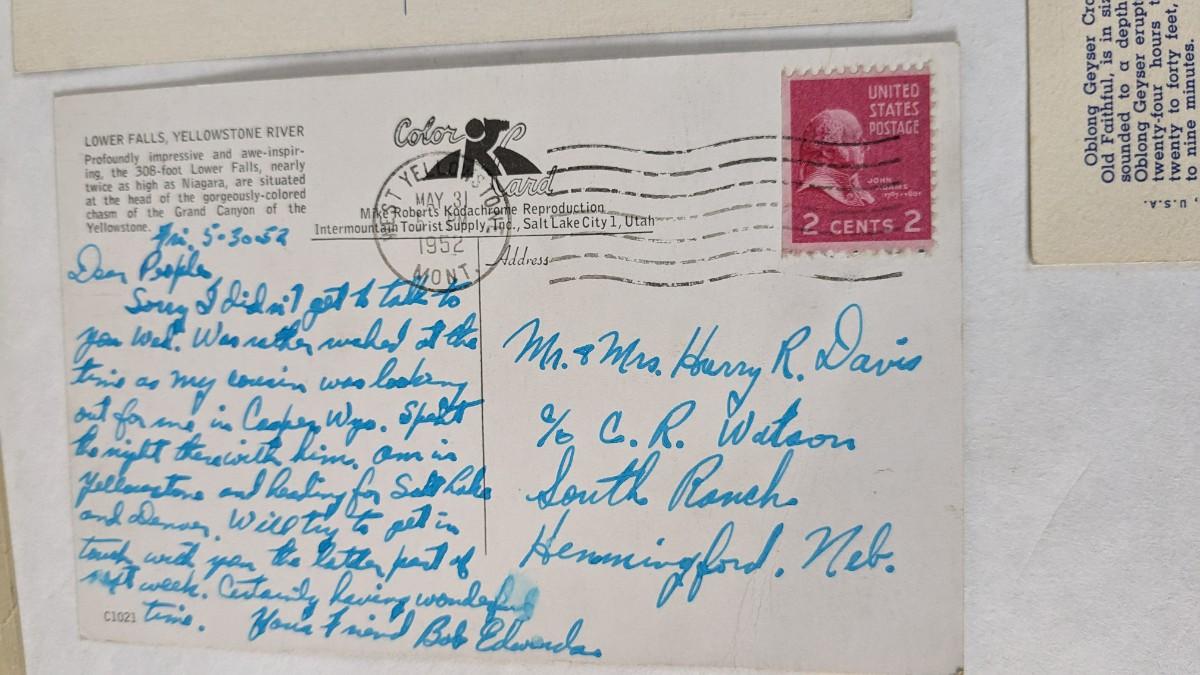 LOWER FALLS, YELLOWSTONE RIVER
Profoundly impressive and awe-inspir-
ing, the 308-foot Lower Falls, nearly
twice as high as Niagara, are situated
at the head of the gorgeously-colored
chasm of the Grand Canyon of the
Yellowstone.
Color Card
Mike Roberts Kodachrome Reproduction
Intermountain Tourist Supply, Inc., Salt Lake City 1, Utah
WEST YELLOWSTONE
MAY 31
PM
1952
MONT.
UNITED
STATES
POSTAGE
JOHN
ADAMS
1797-1801
2 CENTS 2
Address
Fri. 5-30-52
Dear People,
Sorry I didn't get to talk to
you Wed. Was rather rushed at the
time as my cousin was looking
out for me in Casper Wyo. Spent
the night there with him. Am in
Yellowstone and heading for Salt Lake
and Denver. Will try to get in
touch with you the latter part of
next week. Certainly having wonderful
time. Your Friend Bob Edwards
C1021
Mr. & Mrs. Harry R. Davis
c/o C. R. Watson
South Ranch
Hemmingford, Neb.
Oblong Geyser Cr
Old Faithful, is in si
sounded to a depth
Oblong Geyser erupt
twenty-four hours t
twenty to forty feet,
to nine minutes.
U.S.A.